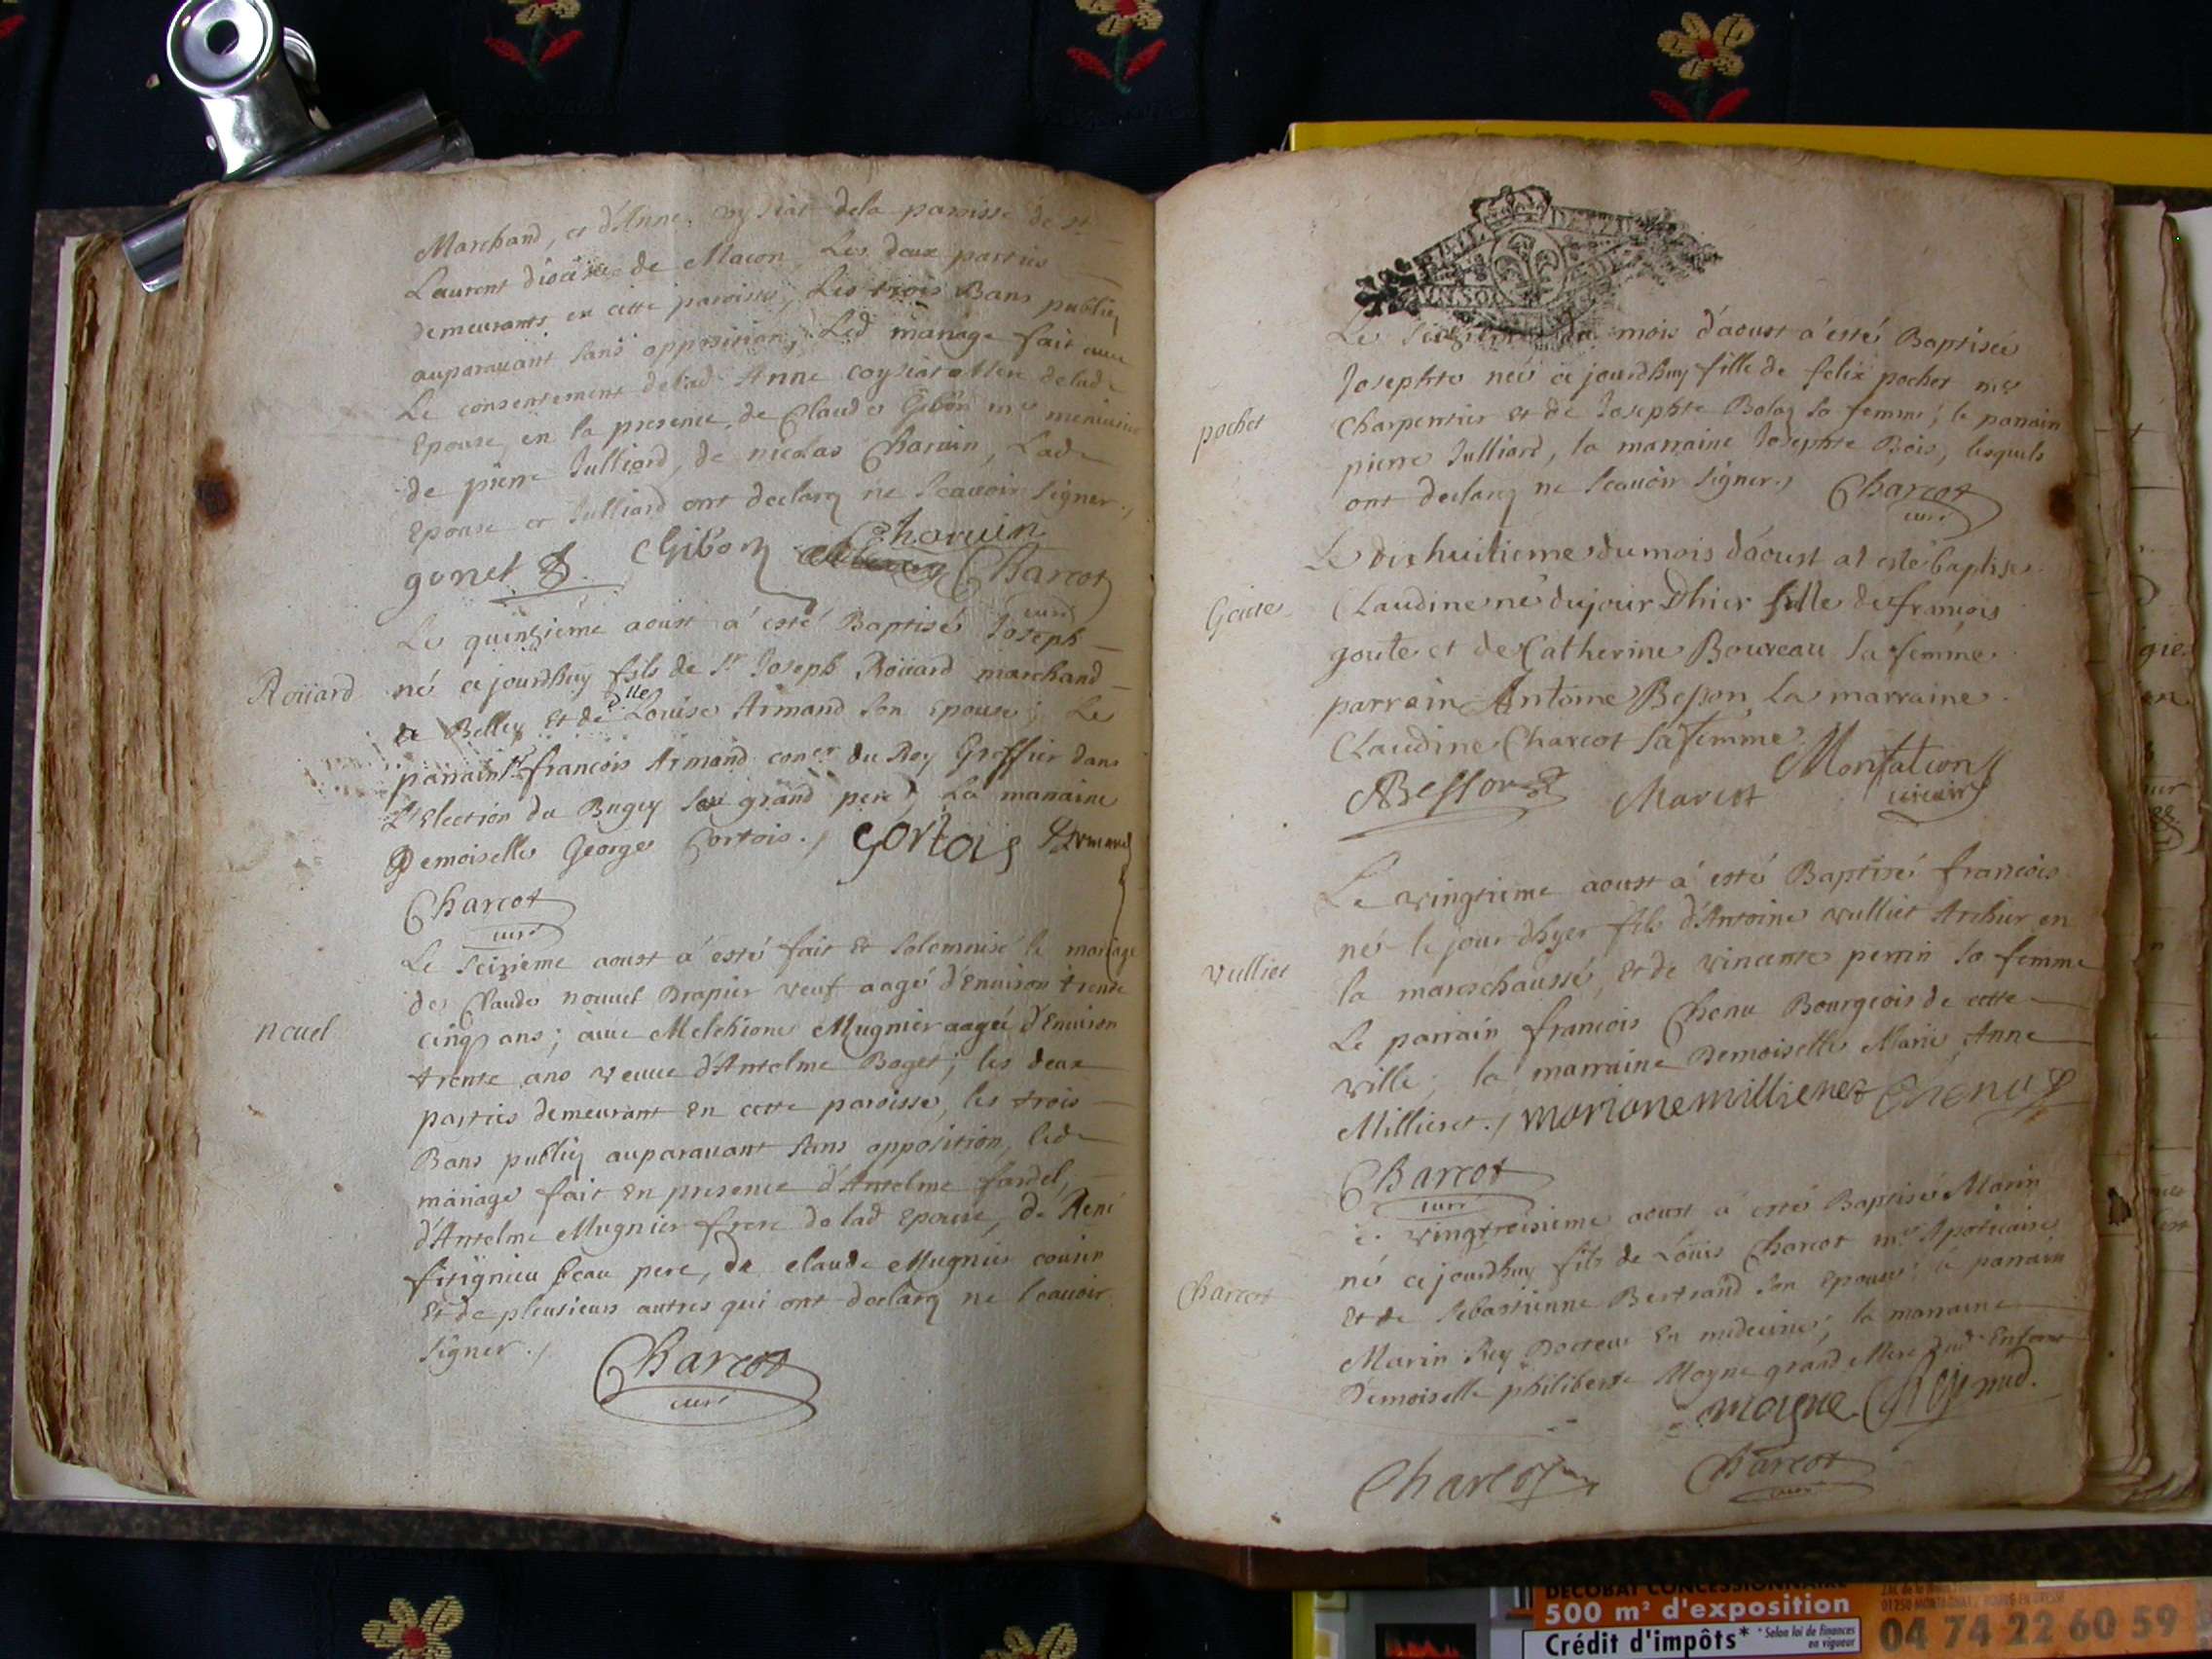 Marchand, et d'Anne Coysiat dela parroisse de st
Laurent diocese de Macon, Les deux parties
demeurants en cette paroisse, Les trois Bans publiez
auparavant sans opposition, Led mariage fait avec
Le consentement delad Anne Coysiat Mere delade
Epouse, en la presence de Claude Gibon me menuisier
de pierre Julliard, de nicolas Charvin, Lade
Epouse et Julliard ont declarez ne scavoir signer./
gonet Gibon Charvin
Charcot
curé
Le quinzieme aoust a esté Baptisé Joseph
Roüard
né cejourdhuy fils de Sr Joseph Roüard marchand
de Belley et de dlle Louise Armand son Epouse; Le
parrain Sr francois Armand coner du Roy Greffier dans
L'Election du Bugey son grand pere, La marraine
Demoiselle George Cortois./ Cortois Armand
Charcot
curé
Le seizieme aoust a esté fait et solemnisé le mariage
de Claude nouvel Drapier veuf aagé d'Environ trente
nouel
cinq ans; avec Melchione Mugnier aagée d'Environ
trente ans veuve d'Antelme Boget; les deux
parties demeurant en cette paroisse, les trois
Bans publiez auparavant sans opposition, led
mariage fait en presence d'Antelme fardel,
d'Antelme Mugnier frere de lad Epouse, de René
fitignieu beau pere, de claude Mugnier cousin
Et de pleusieurs autres qui ont declarez ne scavoir
signer./
Charcot
curé
Le du mois d'aoust a esté Baptisée
Josephte née cejourdhuy fille de felix pochet me
pochet
Charpentier et de Josephte Bolaz sa femme; le parrain
pierre Julliard, la marraine Josephte Bois, lesquels
ont declarez ne scavoir signer./ Charcot
curé
Le dixhuitieme du mois d'aoust at esté baptisé
Goute
Claudine né du jour dhier fille de francois
goute et de Catherine Bouveau sa femme
parrain Antoine Besson la marraine
Claudine Charcot sa femme
ABesson Charcot Montation
vicaire
Le vingtieme aoust a esté Baptisé francois
né le jour dhyer fils d'Antoine vulliet Archier en
vulliet
la mareschaussé, et de vincente perrin sa femme
Le parrain francois Chenu Bourgeois de cette
ville; la marraine Demoiselle Marie Anne
Millieret./ marianemillieret Chenu
Charcot
curé
vingttroisieme aoust a esté Baptisé Marin
né cejourdhuy fils de Loüis Charcot me Apoticaire
Charcot
Et de Sebastienne Bertrand son Epouse; le parrain
Marin Rey Docteur En medecine; la marraine
Demoiselle philiberte Moyne grand Mere dud Enfant
moyne Rey md.
Charcot Charcot
curé
DECOBAT CONCESSIONNAIRE
500 m² d'exposition
Crédit d'impôts* * Selon loi de finances
en vigueur
04 74 22 60 59